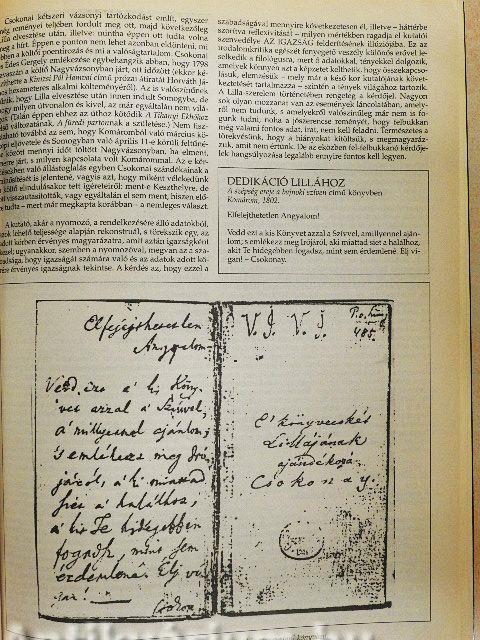 Csokonai kétszeri vázsonyi tartózkodást említ, egyszer
még reményei teljében fordult meg ott, majd következőleg
Lilla elvesztése után, illetve: mintha éppen ott tudta volna
meg a hírt. Éppen e ponton nem lehet azonban eldönteni, mi
ebben a költői poentírozás és mi a valóságtartalom. Csokonai
Édes Gergely emlékezése egybehangzik abban, hogy 1798
tavaszán a költő Nagyvázsonyban járt, ott időzött (ekkor ké-
szíthette a Kinizsi Pál Homoni című pajzán átiratát Horváth Já-
nos hexameteres alkalmi költeményéről). Az is valószínűnek
tűnik, hogy Lilla elvesztése után innen indult Somogyba, de
hogy milyen útvonalon és kivel, az már egyáltalán nem világos.
(Talán éppen ehhez az úthoz kötődik A Tihanyi Ekhóhoz
első változatának, A füredi parton-nak a születése.) Nem tisz-
ázható továbbá az sem, hogy Komáromból való március kö-
zepi elővetele és Somogyban való április 11-e körüli feltűné-
se között mennyi időt töltött Nagyvázsonyban, ha elment,
merre járt, s milyen kapcsolata volt Komárommal. Az e kér-
désekben való állásfoglalás egyben Csokonai szándékainak a
minősítését is jelentené, vagyis azt, hogy miként vélekedünk
a költő elindulásakor tett ígéreteiről: ment-e Keszthelyre, de
ott visszautasították, vagy egyáltalán el sem ment, hiszen elő-
re tudta – mert már megkapta korábban – a nemleges választ.
A kutató, akár a nyomozó, a rendelkezésére álló adatokból,
azok lehető teljessége alapján rekonstruál, s törekszik egy, az
adott körben érvényes magyarázatra, amit aztán igazságként
kezel; ugyanakkor, szemben a nyomozóval, megvan az a sza-
badsága, hogy igazságát számára való és az adatok adott kö-
rére érvényes igazságnak tekintse. A kérdés az, hogy ezzel a
szabadságával mennyire következetesen él, illetve – háttérbe
szorítva reflexivitását – milyen mértékben ragadja el kutatói
szenvedélye AZ IGAZSÁG felderítésének illúziójába. Ez az
irodalomkritika egészét fenyegető veszély különös erővel les-
elkedik a filológusra, mert ő adatokkal, tényekkel dolgozik,
amelyek könnyen azt a képzetet kelthetik, hogy összekapcso-
lásuk, elemzésük – mely már a késő kor kutatójának követ-
keztetését tartalmazza – szintén a tények világához tartozik.
A Lilla-szerelem történetében rengeteg a kérdőjel. Nagyon
sok olyan mozzanat van az események láncolatában, amely-
ről nem tudunk, s amelyekről valószínűleg már nem is fo-
gunk tudni, noha a jószerencse reményét, hogy felbukkan
még valami fontos adat, irat, nem kell feladni. Természetes a
törekvésünk, hogy a hiányokat kitöltsük, s megmagyaráz-
zuk, amit nem értünk. De az eközben fel-felbukkanó kérdője-
lek hangsúlyozása legalább ennyire fontos kell legyen.
DEDIKÁCIÓ LILLÁHOZ
A szépség ereje a bajnoki szíven című könyvben
Komárom, 1802.
Elfelejthetetlen Angyalom!
Vedd ezt a kis Könyvet azzal a Szívvel, amillyennel aján-
lom, s emlékezz meg Írójáról, aki miattad siet a halálhoz,
akit Te hidegebben fogadsz, mint sem érdemlené. Élj ví-
gan! – Csokonay.
Elfejejthetetlen
Angyalom
Vedd ezt a' kis Köny-
vet azzal a' Szívvel,
a' millyennel ajánlom;
's emlékezz meg Író-
járól, a' ki miattad
siet a' halálhoz,
a' kit Te hidegebben
fogadsz, mint sem
érdemlené. Élj ví-
gan! —
V. I. V. I.
485.
E' könyvecskét
Lillájának
ajándékozá
Csokonay.